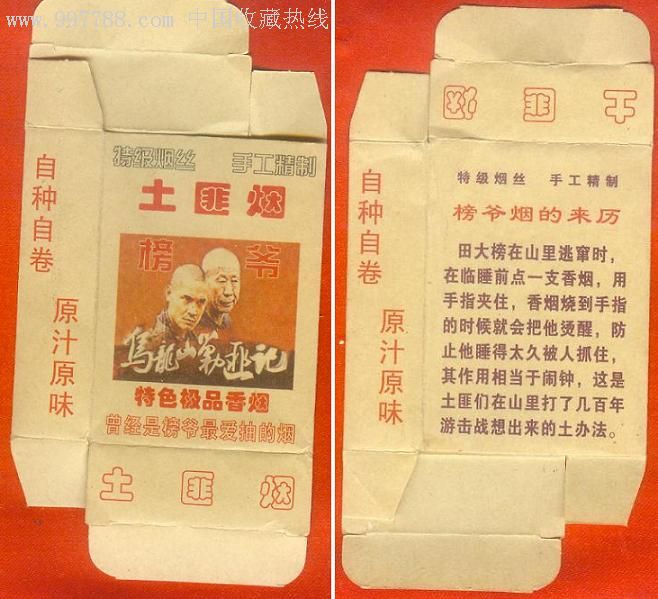 www.997788.com 中国收藏热线
特级烟丝 手工精制
土匪烟
榜爷
乌龙山剿匪记
特色极品香烟
曾经是榜爷最爱抽的烟
土匪烟
自种自卷
原汁原味
土匪烟
特级烟丝 手工精制
榜爷烟的来历
田大榜在山里逃窜时，
在临睡前点一支香烟，用
手指夹住，香烟烧到手指
的时候就会把他烫醒，防
止他睡得太久被人抓住，
其作用相当于闹钟，这是
土匪们在山里打了几百年
游击战想出来的土办法。
自种自卷
原汁原味